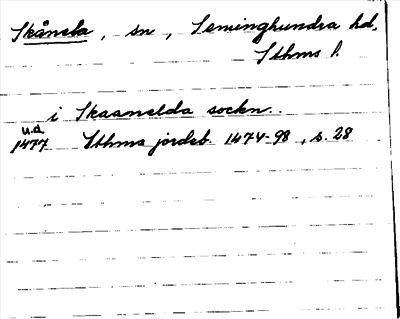 Skånela, sn, Seminghundra hd,
Sthms l.
i Skaanelda sockn..
u.å
1477 Sthms jordeb. 1474-98, s. 28